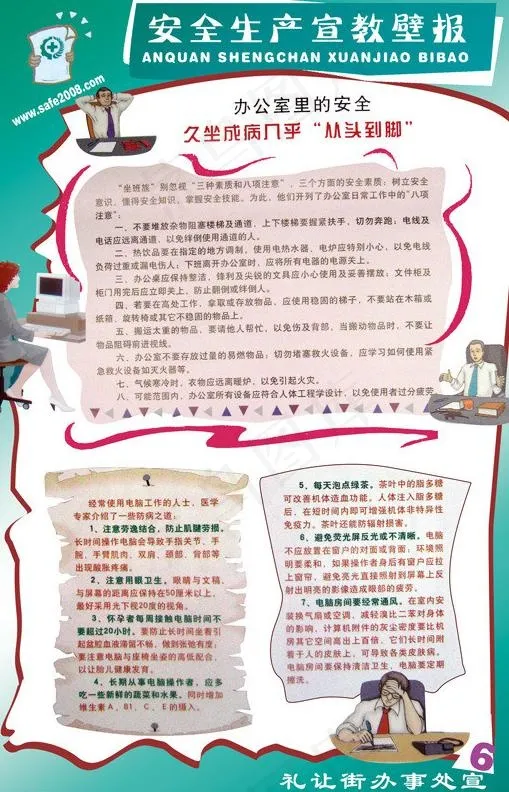 安全生产宣教壁报
ANQUAN SHENGCHAN XUANJIAO BIBAO
www.safe2008.com
办公室里的安全
久坐成病几乎“从头到脚”
“坐班族”别忽视“三种素质和八项注意”，三个方面的安全素质：树立安全
意识，懂得安全知识，掌握安全技能。为此，他们开列了办公室日常工作中的“八项
注意”：
一、不要堆放杂物阻塞楼梯及通道，上下楼梯要握紧扶手，切勿奔跑；电线及
电话应远离通道，以免绊倒使用通道的人。
二、热饮品要在指定的地方调制，使用电热水器、电炉应特别小心，以免电线
负荷过重或漏电伤人；下班离开办公室时，应将所有电器的电源关上。
三、办公桌应保持整洁，锋利及尖锐的文具应小心使用及妥善摆放；文件柜及
柜门用完后应立即关上，防止翻倒或绊倒人。
四、若要在高处工作，拿取或存放物品，应使用稳固的梯子，不要站在木箱或
纸箱、旋转椅或其它不稳固的物品上。
五、搬运太重的物品，要请他人帮忙，以免伤及背部，当搬动物品时，不要让
物品阻碍前进视线。
六、办公室不要存放过量的易燃物品；切勿堵塞救火设备，应学习如何使用紧
急救火设备如灭火器等。
七、气候寒冷时，衣物应远离暖炉，以免引起火灾。
八、可能范围内，办公室所有设备应符合人体工程学设计，以免使用者过分疲劳
经常使用电脑工作的人士，医学
专家介绍了一些防病之道：
1、注意劳逸结合，防止肌腱劳损。
长时间操作电脑会导致手指关节、手
腕、手臂肌肉、双肩、颈部、背部等
出现酸胀疼痛。
2、注意用眼卫生。眼睛与文稿、
与屏幕的距离应保持在50厘米以上，
最好采用光下视20度的视角。
3、怀孕者每周接触电脑时间不
要超过20小时。要防止长时间坐着引
起盆腔血液滞留不畅，做到张弛有度；
要注意电脑与座椅坐姿的高低配合，
以让胎儿健康发育。
4、长期从事电脑操作者，应多
吃一些新鲜的蔬菜和水果，同时增加
维生素A、B1、C、E的摄入。
5、每天泡点绿茶。茶叶中的脂多糖
可改善机体造血功能，人体注入脂多糖
后，在短时间内即可增强机体非特异性
免疫力。茶叶还能防辐射损害。
6、避免荧光屏反光或不清晰。电脑
不应放置在窗户的对面或背面；环境照
明要柔和，如果操作者身后有窗户应拉
上窗帘，避免亮光直接照射到屏幕上反
射出明亮的影像造成眼部的疲劳。
7、电脑房间要经常通风。在室内安
装换气扇或空调，减轻溴比二苯对身体
的影响，计算机附件的灰尘密度要比机
房其它空间高出上百倍，它们长时间附
着于人的皮肤上，可导致各类皮肤病。
电脑房间要保持清洁卫生，电脑要定期
擦洗。
6
礼让街办事处宣